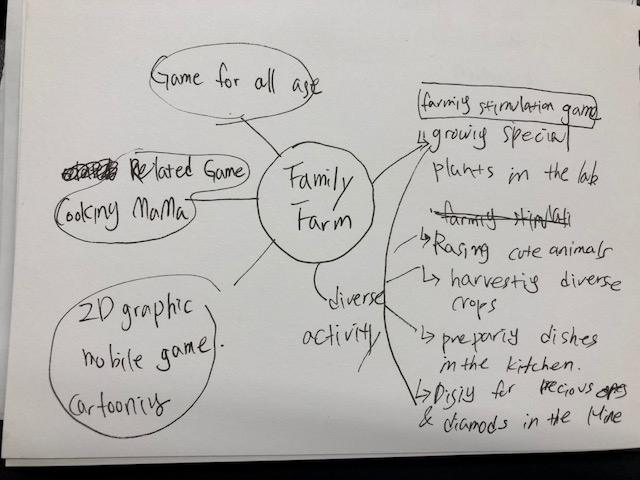 Game for all age
Related Game
Cooking MaMa
Family
Farm
2D graphic
mobile game.
Cartooniy
diverse
activity
farmiy stimulation game
growiy special
plants in the lab
farmiy stimlati
Rasing cute animals
harvestiy diverse
crops
prepariy dishes
in the kitchen.
Disiy for recious
& diamods in the Mine